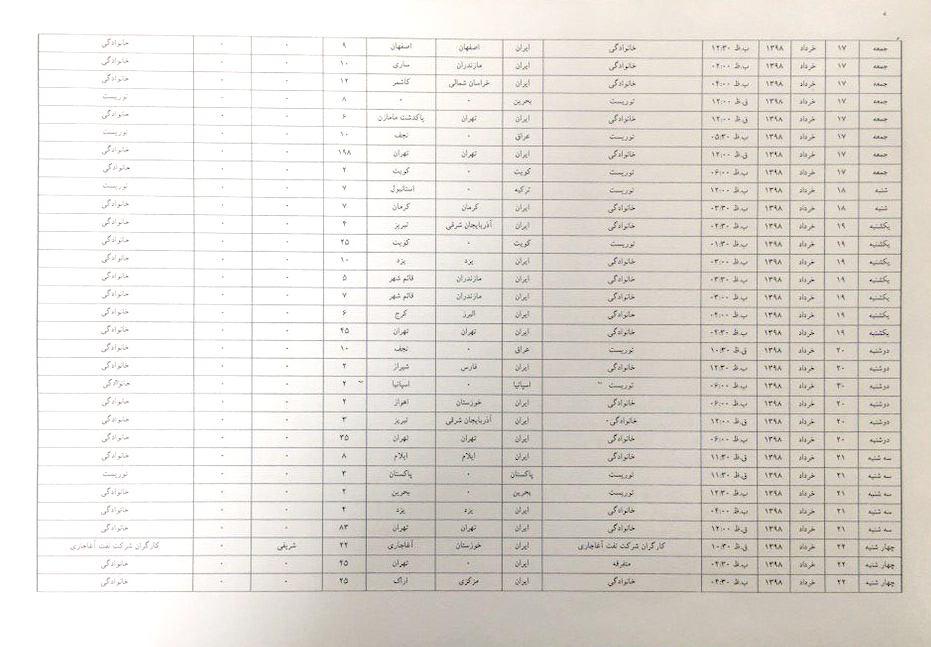 جمعه ۱۷ خرداد ۱۳۹۸ ب.ظ ۱۲:۳۰ خانوادگی ایران اصفهان اصفهان ۹ ۰ ۰ خانوادگی
جمعه ۱۷ خرداد ۱۳۹۸ ب.ظ ۰۲:۰۰ خانوادگی ایران مازندران ساری ۱۰ ۰ ۰ خانوادگی
جمعه ۱۷ خرداد ۱۳۹۸ ب.ظ ۰۴:۰۰ خانوادگی ایران خراسان شمالی کاشمر ۱۲ ۰ ۰ خانوادگی
جمعه ۱۷ خرداد ۱۳۹۸ ق.ظ ۱۲:۰۰ توریست بحرین ۰ ۰ ۸ ۰ ۰ توریست
جمعه ۱۷ خرداد ۱۳۹۸ ق.ظ ۱۲:۰۰ خانوادگی ایران تهران پاکدشت مامازن ۶ ۰ ۰ خانوادگی
جمعه ۱۷ خرداد ۱۳۹۸ ب.ظ ۰۵:۳۰ توریست عراق ۰ نجف ۱۰ ۰ ۰ توریست
جمعه ۱۷ خرداد ۱۳۹۸ ق.ظ ۱۲:۰۰ خانوادگی ایران تهران تهران ۱۹۸ ۰ ۰ خانوادگی
جمعه ۱۷ خرداد ۱۳۹۸ ب.ظ ۰۶:۰۰ توریست کویت ۰ کویت ۲ ۰ ۰ خانوادگی
شنبه ۱۸ خرداد ۱۳۹۸ ب.ظ ۱۲:۰۰ توریست ترکیه ۰ استانبول ۷ ۰ ۰ توریست
شنبه ۱۸ خرداد ۱۳۹۸ ب.ظ ۰۳:۳۰ خانوادگی ایران کرمان کرمان ۷ ۰ ۰ خانوادگی
یکشنبه ۱۹ خرداد ۱۳۹۸ ب.ظ ۰۲:۳۰ خانوادگی ایران آذربایجان شرقی تبریز ۴ ۰ ۰ خانوادگی
یکشنبه ۱۹ خرداد ۱۳۹۸ ب.ظ ۰۱:۳۰ توریست کویت ۰ کویت ۲۵ ۰ ۰ خانوادگی
یکشنبه ۱۹ خرداد ۱۳۹۸ ب.ظ ۰۳:۰۰ خانوادگی ایران یزد یزد ۱۰ ۰ ۰ خانوادگی
یکشنبه ۱۹ خرداد ۱۳۹۸ ب.ظ ۰۳:۳۰ خانوادگی ایران مازندران قائم شهر ۵ ۰ ۰ خانوادگی
یکشنبه ۱۹ خرداد ۱۳۹۸ ب.ظ ۰۳:۰۰ خانوادگی ایران مازندران قائم شهر ۷ ۰ ۰ خانوادگی
یکشنبه ۱۹ خرداد ۱۳۹۸ ب.ظ ۰۴:۰۰ خانوادگی ایران البرز کرج ۶ ۰ ۰ خانوادگی
یکشنبه ۱۹ خرداد ۱۳۹۸ ب.ظ ۰۲:۳۰ خانوادگی ایران تهران تهران ۴۵ ۰ ۰ خانوادگی
دوشنبه ۲۰ خرداد ۱۳۹۸ ق.ظ ۱۰:۳۰ توریست عراق ۰ نجف ۱۰ ۰ ۰ خانوادگی
دوشنبه ۲۰ خرداد ۱۳۹۸ ب.ظ ۱۲:۳۰ خانوادگی ایران فارس شیراز ۲ ۰ ۰ خانوادگی
دوشنبه ۲۰ خرداد ۱۳۹۸ ب.ظ ۰۶:۰۰ توریست اسپانیا ۰ اسپانیا ۲ ۰ ۰ خانوادگی
دوشنبه ۲۰ خرداد ۱۳۹۸ ب.ظ ۰۶:۰۰ خانوادگی ایران خوزستان اهواز ۲ ۰ ۰ خانوادگی
دوشنبه ۲۰ خرداد ۱۳۹۸ ق.ظ ۱۲:۰۰ خانوادگی ایران آذربایجان شرقی تبریز ۳ ۰ ۰ خانوادگی
دوشنبه ۲۰ خرداد ۱۳۹۸ ب.ظ ۰۶:۰۰ خانوادگی ایران تهران تهران ۳۵ ۰ ۰ خانوادگی
سه شنبه ۲۱ خرداد ۱۳۹۸ ق.ظ ۱۱:۳۰ خانوادگی ایران ایلام ایلام ۸ ۰ ۰ خانوادگی
سه شنبه ۲۱ خرداد ۱۳۹۸ ق.ظ ۱۱:۳۰ توریست پاکستان ۰ پاکستان ۳ ۰ ۰ توریست
سه شنبه ۲۱ خرداد ۱۳۹۸ ب.ظ ۱۲:۳۰ توریست بحرین ۰ بحرین ۲ ۰ ۰ خانوادگی
سه شنبه ۲۱ خرداد ۱۳۹۸ ب.ظ ۰۴:۰۰ خانوادگی ایران یزد یزد ۴ ۰ ۰ خانوادگی
سه شنبه ۲۱ خرداد ۱۳۹۸ ق.ظ ۱۲:۰۰ خانوادگی ایران تهران تهران ۸۳ ۰ ۰ خانوادگی
چهار شنبه ۲۲ خرداد ۱۳۹۸ ق.ظ ۱۰:۳۰ کارگران شرکت نفت آغاجاری ایران خوزستان آغاجاری ۲۲ شریفی ۰ کارگران شرکت نفت آغاجاری
چهار شنبه ۲۲ خرداد ۱۳۹۸ ب.ظ ۰۴:۳۰ متفرقه ایران ۰ تهران ۴۵ ۰ ۰ خانوادگی
چهار شنبه ۲۲ خرداد ۱۳۹۸ ب.ظ ۰۴:۳۰ خانوادگی ایران مرکزی اراک ۲۵ ۰ ۰ خانوادگی